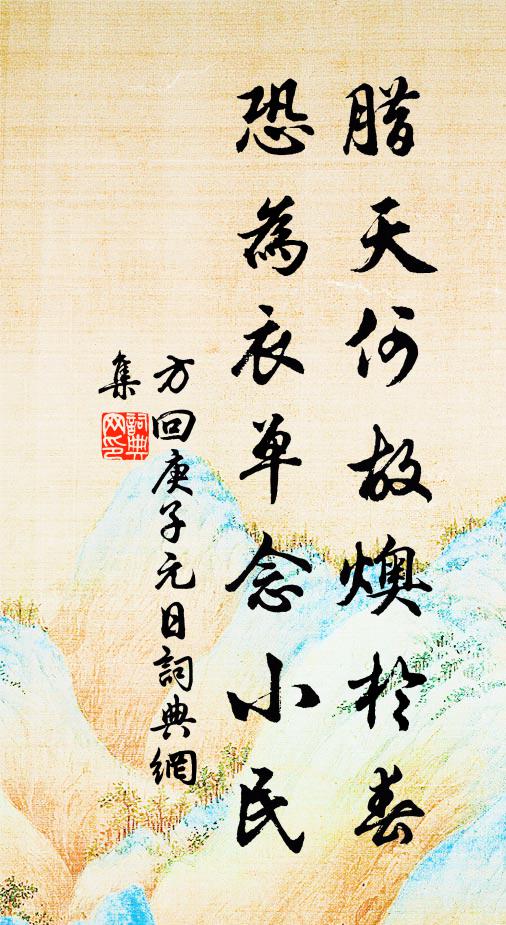 腊天何故燠於春
恐為衣单念小民
方回庚子元日詞典網
集
詞典网印